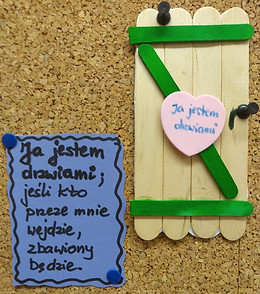 Ja jestem
drzwiami;
jeśli kto
przeze mnie
wejdzie,
zbawiony
będzie.
Ja jestem
drzwiami